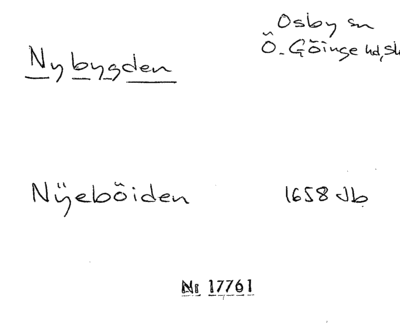 Osby sn
Ö. Göinge hd, Sk
Nybygden
Nÿebôiden 1658 Jb
Nr 17761